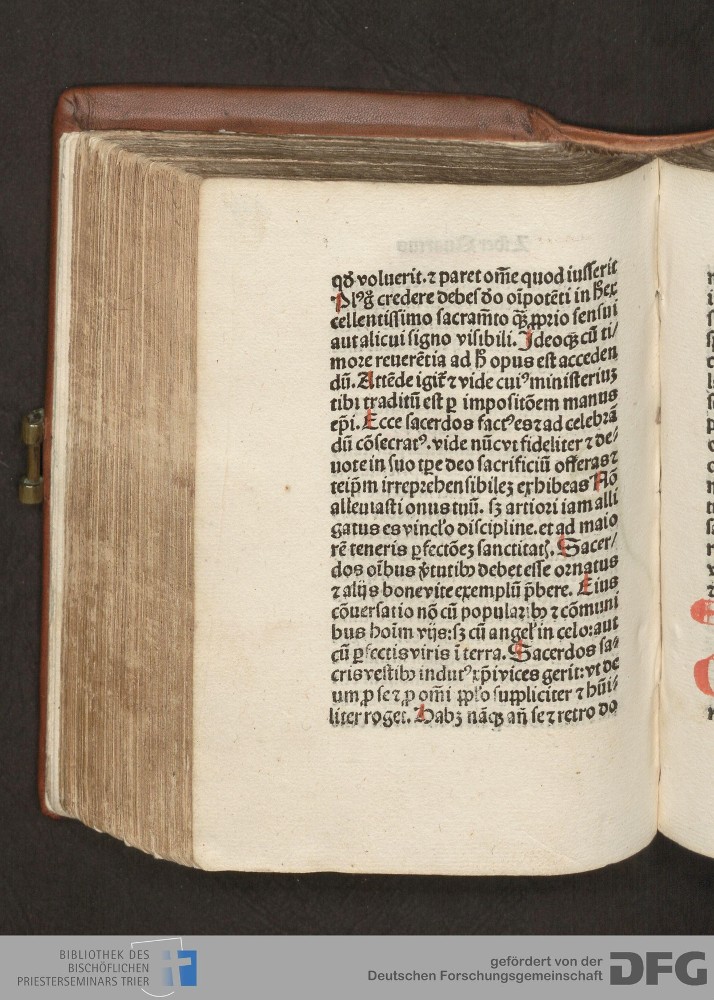 qđ voluerit. ⁊ paret om̄e quod iusserit
Plꝰg̊ credere debes do oīpotēti in h̄ ex
cellentissimo sacramto qꝫ ꝓprio sensui
aut alicui signo visibili. Ideoqꝫ cū ti/
more reuerētia ad h̄ opus est acceden
dū. Attēde igit̄ ⁊ vide cuiꝰ ministeriuꝫ
tibi traditū est ꝑ impositōem manus
ep̄i. Ecce sacerdos factꝰ es ⁊ ad celebrā
dū cōsecratꝰ. vide nūc vt fideliter ⁊ de/
uote in suo tꝑe deo sacrificiū offeras ⁊
teip̄m irreprehensibileꝫ exhibeas Nō
alleuiasti onus tuū. sꝫ artiori iam alli
gatus es vinclo discipline. et ad maio
rē teneris ꝑfectōeꝫ sanctitatꝭ. Sacer/
dos oībus v̄tutibꝫ debet esse ornatus
⁊ alijs bone vite exemplū p̄bere. Eius
cōuersatio nō cū popularibꝫ ⁊ cōmuni
bus hoīm vijs: sꝫ cū angelꝭ in celo: aut
cū ꝑfectis viris ī terra. Sacerdos sa-
cris vestibꝫ indutꝰ xp̄i vices gerit: vt de
um ꝓ se ⁊ ꝓ omī ꝓplo suppliciter ⁊ hūi-
liter roget. Habꝫ nāqꝫ an̄ se ⁊ retro do
BIBLIOTHEK DES
BISCHÖFLICHEN
PRIESTERSEMINARS TRIER
gefördert von der
Deutschen Forschungsgemeinschaft
DFG